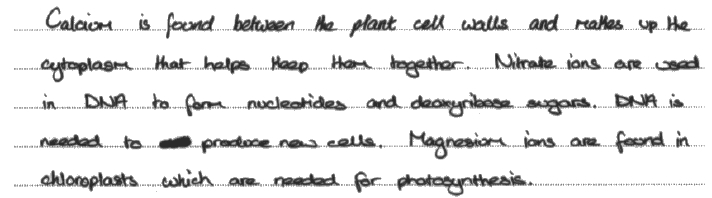 Calcium is found between the plant cell walls and makes up the
cytoplasm that helps keep them together. Nitrate ions are used
in DNA to form nucleotides and deoxyribose sugars. DNA is
needed to produce new cells. Magnesium ions are found in
chloroplasts which are needed for photosynthesis.